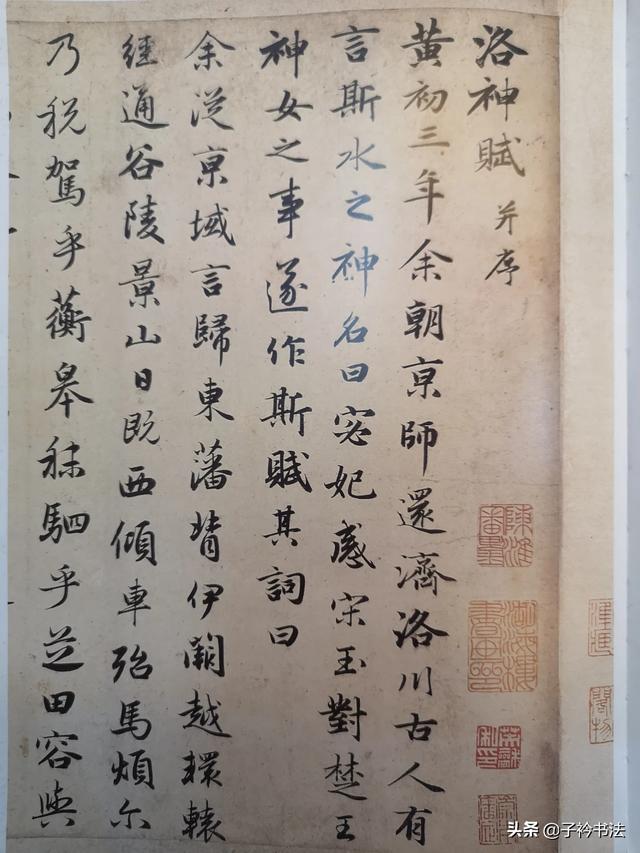 洛神賦 并序
黃初三年余朝京師還濟洛川古人有
言斯水之神名曰宓妃感宋玉對楚王
神女之事遂作斯賦其詞曰
余從京域言歸東藩背伊闕越轘轅
經通谷陵景山日既西傾車殆馬煩尔
乃税駕乎蘅皋秣駟乎芝田容與
头条@子衿书法